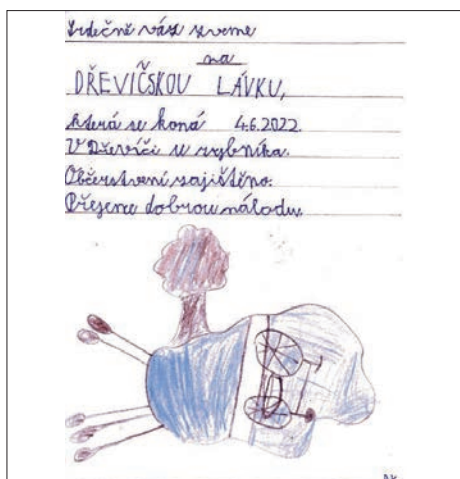 Srdečně vás zveme
na
DŘEVÍČSKOU LÁVKU,
která se koná 4.6.2022
V Dřevíči u rybníka.
Občerstvení zajištěno.
Přejeme dobrou náladu.